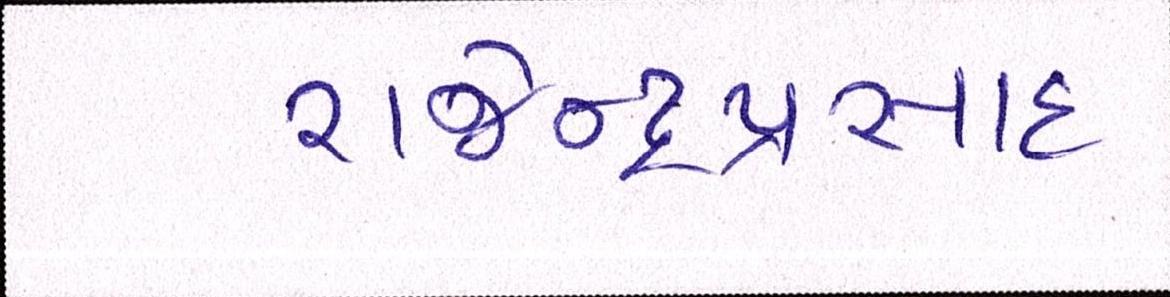 રાજેન્દ્રપ્રસાદ